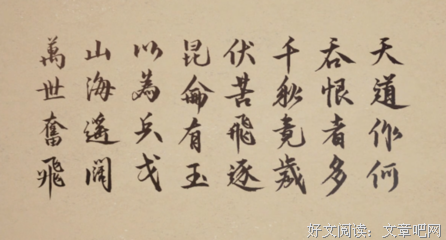 天道作何
吞恨者多
千秋竟歲
伏萇飛逐
昆侖有玉
以為兵戈
山海遙闊
萬世奮飛
好文阅读:文章吧网